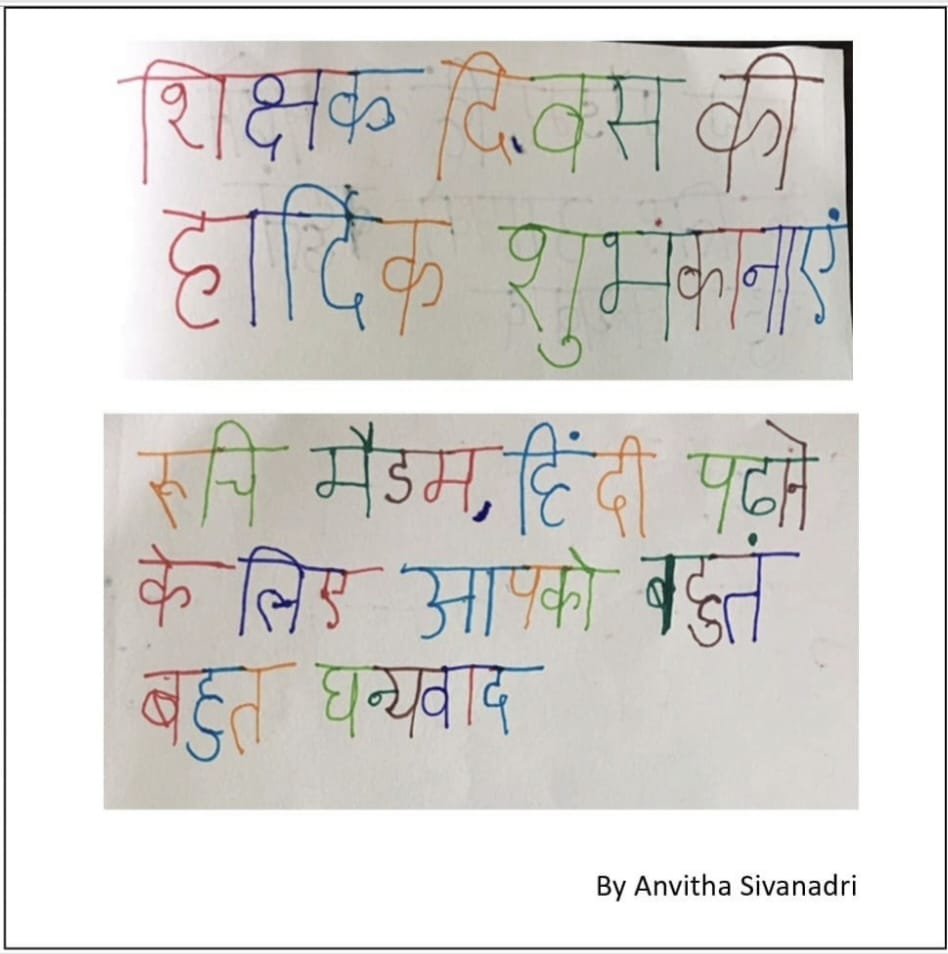 शिक्षक दिवस की
हार्दिक शुभकानाएं
रूचि मैडम, हिंदी पढने
के लिए आपको बहुतं
बहुत धन्यवाद
By Anvitha Sivanadri